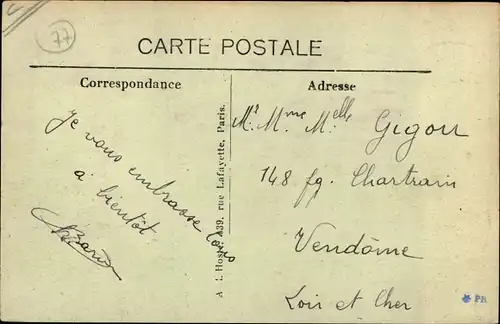 77
CARTE POSTALE
Correspondance
Adresse
Je vous embrasse tous
à bientôt
239, rue Lafayette, Paris.
Mr Mme Melle Gigou
148 fg. Chartrain
Vendôme
Loir et Cher